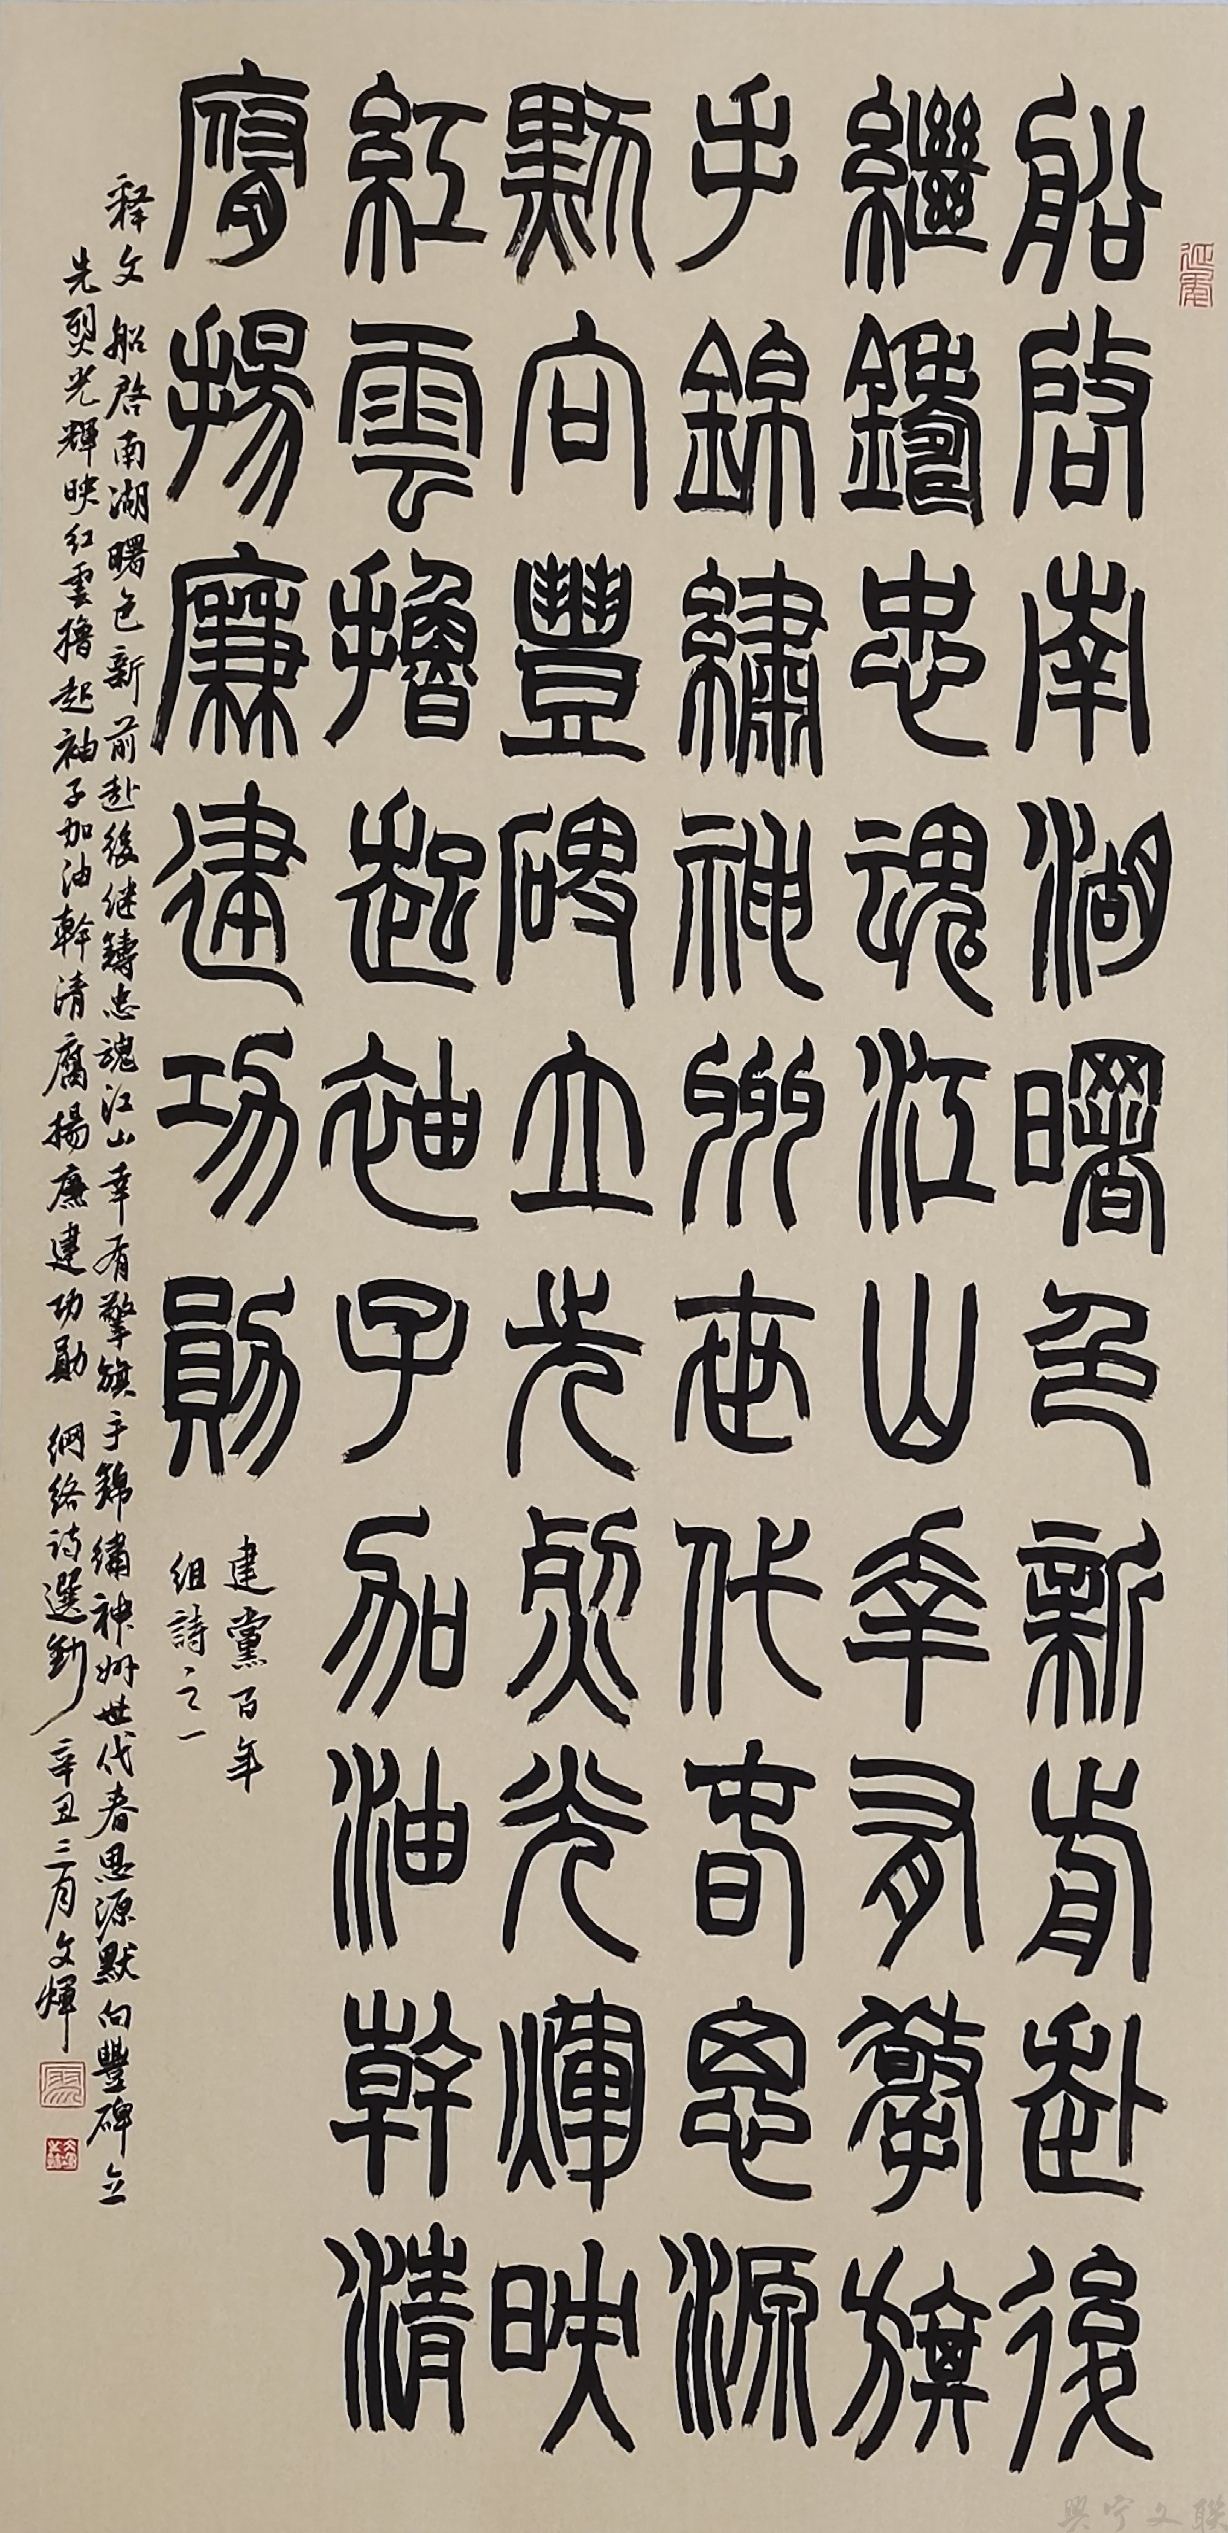 船啓南湖曙色新前赴後
繼鑄忠魂江山幸有擎旗
手錦繡神州世代春思源
默向豐碑立先烈光輝映
紅雲擼起袖子加油幹清
腐揚廉建功勛
建黨百年
組詩之一
释文船啓南湖曙色新前赴後继鑄忠魂江山幸有擎旗手錦繡神州世代春思源默向豐碑立
先烈光輝映红雲擼起袖子加油幹清腐揚廉建功勛 網絡诗選鈔辛丑三月文煇
興宁文联